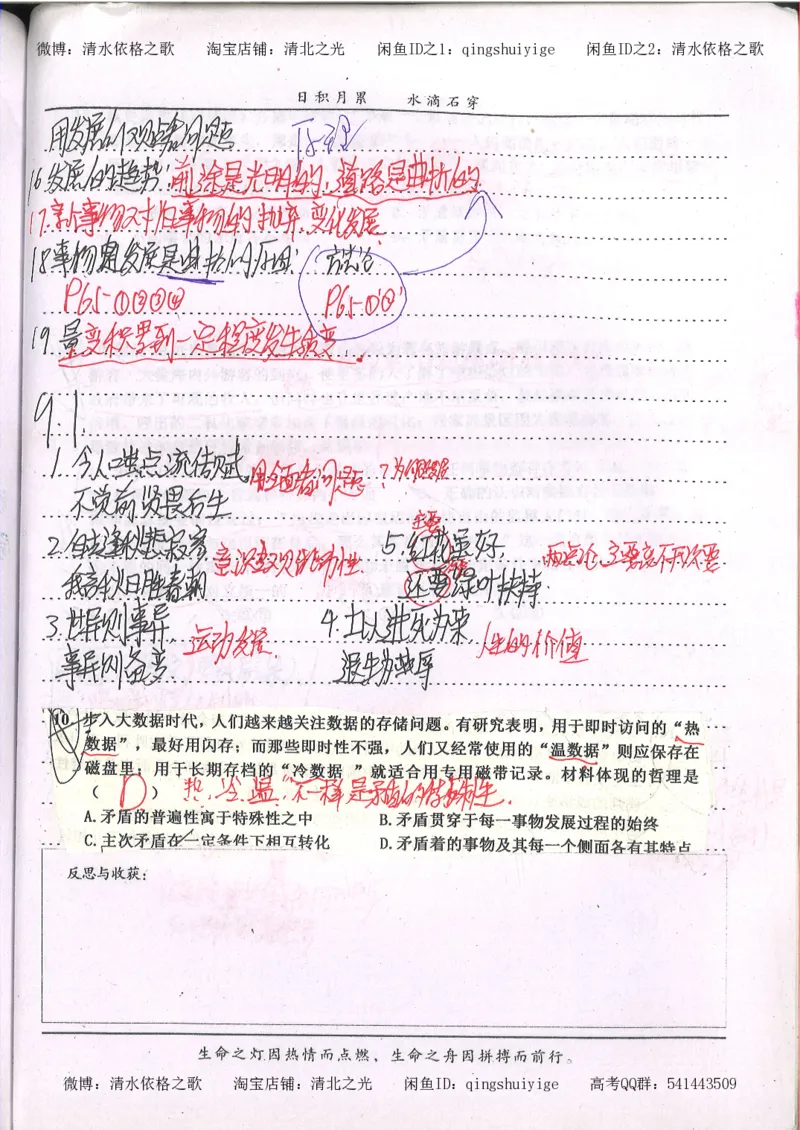 微博：清水依格之歌 淘宝店铺：清北之光 闲鱼ID之1：qingshuiyige 闲鱼ID之2：清水依格之歌
日积月累 水滴石穿
用发展的观点看问题 原理
16发展的趋势：前途是光明的，道路是曲折的
17.新事物对旧事物的抛弃，变化发展
18事物发展是曲折的原因： 方法论
P65-①②③④ P65-①②
19.量变积累到一定程度发生质变
9.1
1.今人嗤点流传赋 用全面看问题？发展
不觉前贤畏后生
2.自古逢秋悲寂寥 意识 能动性 5.红花虽好 主要 两点论，主要离不开次要
我言秋日胜春朝 还要绿叶扶持
3.世异则事异， 运动发展 4.士以进死为荣， 人生的价值
事异则备变 退生为辱
10.步入大数据时代，人们越来越关注数据的存储问题。有研究表明，用于即时访问的“热
数据”，最好用闪存；而那些即时性不强，人们又经常使用的“温数据”则应保存在
磁盘里；用于长期存档的“冷数据 ”就适合用专用磁带记录。材料体现的哲理是
（ D ） 热、冷、温，不一样是矛盾的特殊性.
A.矛盾的普遍性寓于特殊性之中 B.矛盾贯穿于每一事物发展过程的始终
C.主次矛盾在一定条件下相互转化 D.矛盾着的事物及其每一个侧面各有其特点
反思与收获：
生命之灯因热情而点燃，生命之舟因拼搏而前行。
微博：清水依格之歌 淘宝店铺：清北之光 闲鱼ID：qingshuiyige 高考QQ群：541443509